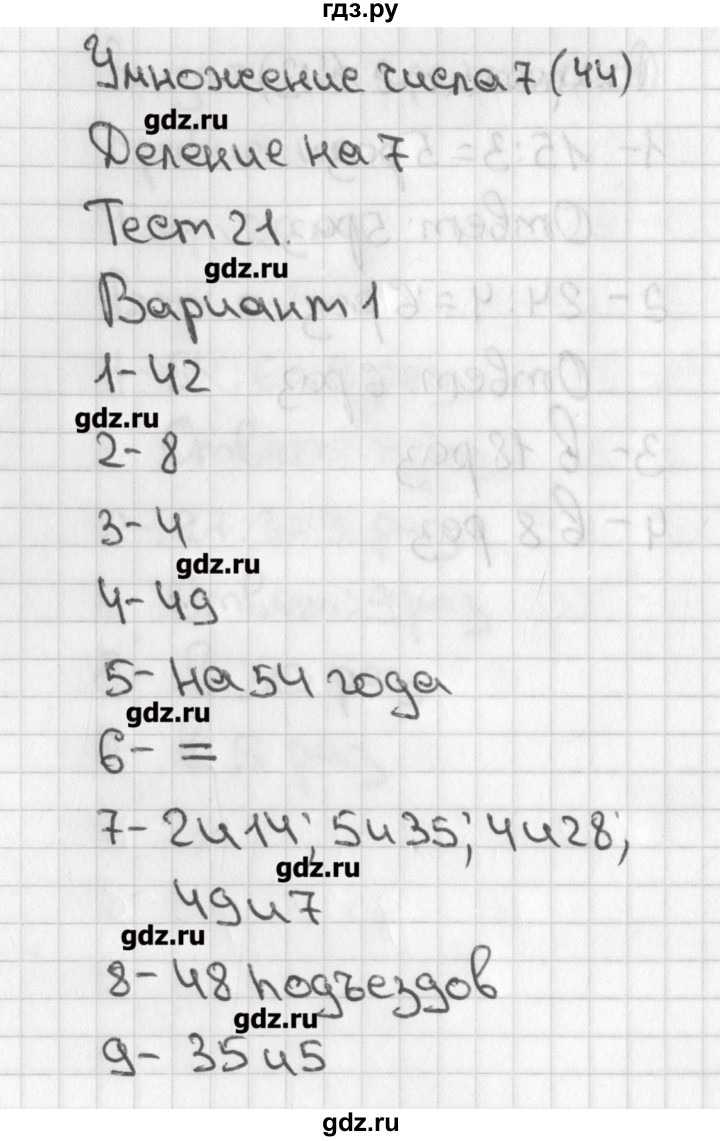 гдз.ру
Умножение числа 7 (44)
gdz.ru
Деление на 7
Тест 21.
gdz.ru
Вариант 1
1- 42
gdz.ru
2- 8
3- 4
gdz.ru
4- 49
5- на 54 года
gdz.ru
6- =
7- 2 и 14; 5 и 35; 4 и 28;
gdz.ru
49 и 7
gdz.ru
8- 48 подъездов
gdz.ru
9- 35 и 5
gdz.ru